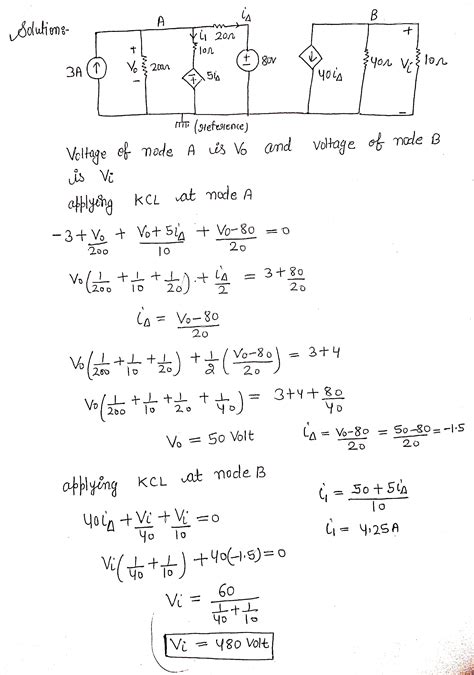 Solution:-
A
i₁
10Ω
20Ω
iΔ
B
3A
+
V₀
-
200Ω
5iΔ
80V
40iΔ
40Ω
+
Vi
-
10Ω
(reference)
Voltage of node A is V₀ and voltage of node B
is Vi
applying KCL at node A
-3 + V₀/200 + (V₀+5iΔ)/10 + (V₀-80)/20 = 0
V₀(1/200 + 1/10 + 1/20) + iΔ/2 = 3 + 80/20
iΔ = (V₀-80)/20
V₀(1/200 + 1/10 + 1/20) + 1/2((V₀-80)/20) = 3+4
V₀(1/200 + 1/10 + 1/20 + 1/40) = 3+4+80/40
V₀ = 50 Volt
iΔ = (V₀-80)/20 = (50-80)/20 = -1.5
applying KCL at node B
i₁ = (50+5iΔ)/10
40iΔ + Vi/40 + Vi/10 = 0
i₁ = 4.25A
Vi(1/40 + 1/10) + 40(-1.5) = 0
Vi = 60/(1/40 + 1/10)
Vi = 480 Volt